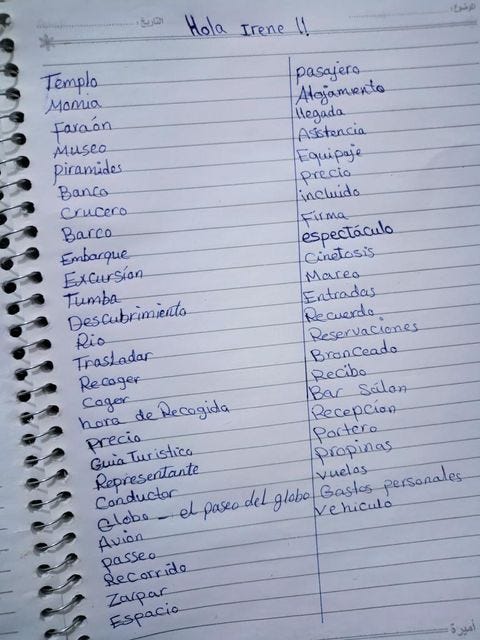 الموضوع:
التاريخ:
Hola Irene !!
Templo
Momia
Faraón
Museo
Piramides
Banco
Crucero
Barco
Embarque
Excursíon
Tumba
Descubrimiento
Rio
Trasladar
Recoger
Coger
hora de Recogida
precio
Guia Turistico
Representante
Conductor
Globo - el paseo del globo
Avion
passeo
Recorrido
Zarpar
Espacio
pasajero
Alojamiento
llegada
Asistencia
Equipaje
precio
incluido
Firma
espectáculo
Cinetosis
Mareo
Entradas
Recuerdo
Reservaciones
Bronceado
Recibo
Bar Sálon
Recepcíon
Portero
propinas
vuelos
Gastos personales
vehiculo
أميرة